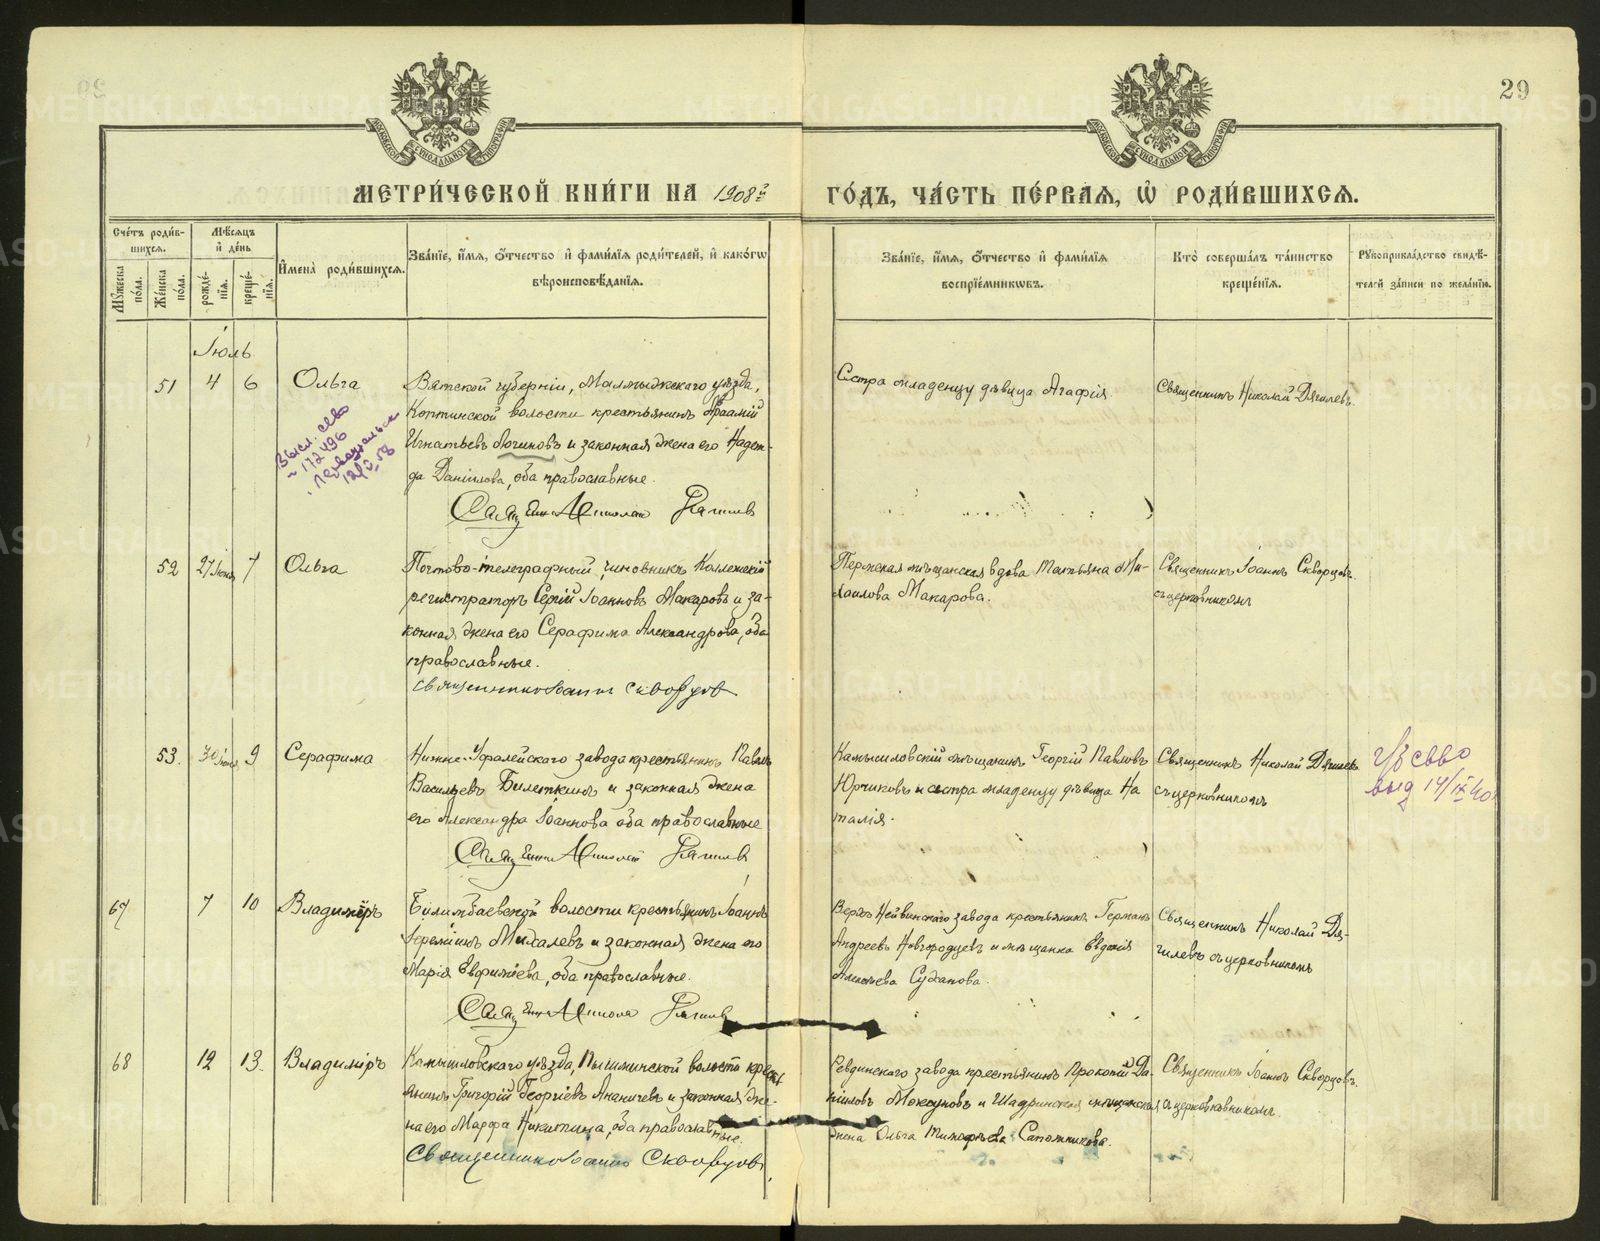 29
МЕТРИ́ЧЕСКОЙ КНИ́ГИ НА 1908 г.
ГО́ДЪ, ЧА́СТЬ ПЕ́РВАЯ, Ѿ РОДИ́ВШИХСЯ.
Сче́тъ роди́в-
шихся.
Мꙋ́жеска по́ла.
Же́нска по́ла.
Мѣ́сяцъ и́ де́нь
рожде́-
нїя.
креще́-
нїя.
И́мена̀ роди́вшихся.
Зва́нїе, и́мя, ѻ́тчество и́ фами́лїя роди́телей, и́ како́гѡ
вѣроисповѣ́данїя.
Зва́нїе, и́мя, ѻ́тчество и́ фами́лїя
воспрїе́мникѡвъ.
Кто̀ соверша́лъ та́инство
креще́нїя.
Рꙋкоприкла́дство свидѣ́-
телей за́писи по жела́нїю.
Іюль
51 4 6 Ольга
Вятской губерніи, Малмыжскаго уѣзда,
волости крестьянинъ Авраамій
Игнатьевъ Логиновъ и законная жена его Надеж-
да Даніилова, оба православные.
Свящ Николай Дягилевъ
Сестра младенцу дѣвица Агафія.
Священникъ Николай Дягилевъ.
Высл. св-во
172496
12/V 58
52 27 Іюня 7 Ольга
Почтово-телеграфный чиновникъ Коллежскій
регистраторъ Сергій Іоанновъ Макаровъ и за-
конная жена его Серафима Александрова, оба
православные.
Священникъ Іоаннъ Скворцовъ
Пермская мѣщанская вдова Татьяна Ми-
хаилова Макарова.
Священникъ Іоаннъ Скворцовъ
съ церковникомъ
53. 30 Іюня 9 Серафима
Нижне-Уфалейскаго завода крестьянинъ Павелъ
Васильевъ Билеткинъ и законная жена
его Александра Іоаннова оба православные
Свящ Николай Дягилевъ
Камышловскій мѣщанинъ Георгій Павловъ
Юрчиковъ и сестра младенцу дѣвица На-
талія.
Священникъ Николай Дягилевъ
съ церковникомъ
св-во
выд 14/IX 40
67 7 10 Владиміръ
Билимбаевской волости крестьянинъ Іоаннъ
Іереміинъ Михалевъ и законная жена его
Марія Евфиміева, оба православные.
Свящ Николай Дягилевъ
Верхъ Нейвинскаго завода крестьянинъ Германъ
Андреевъ Новгородцевъ и мѣщанка Евдокія
Алексѣева Суханова.
Священникъ Николай Дя-
гилевъ съ церковникомъ
68 12 13. Владиміръ
Камышловскаго уѣзда, Пышминской волости крест-
янинъ Григорій Георгіевъ Ананичевъ и законная же-
на его Марѳа Никитина, оба православные.
Священникъ Іоаннъ Скворцовъ
Ревдинскаго завода крестьянинъ Прокопій Да-
ніиловъ Моксуновъ и Шадринская мѣщанская
жена Ольга Тимофѣева Сапожникова.
Священникъ Іоаннъ Скворцовъ
съ церковникомъ.
METRIKI.GASO-URAL.RU